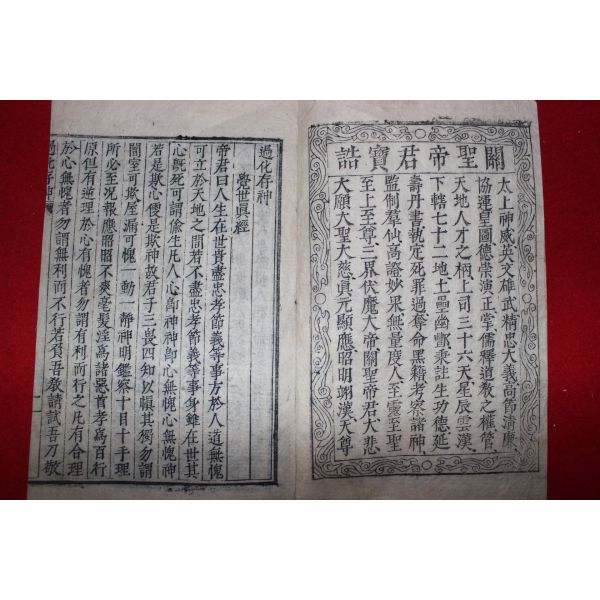 關聖帝君寶誥
太上神威英文雄武精忠大義高節清廉
協運皇圖德崇演正掌儒釋道教之權管
天地人才之柄上司三十六天星辰雲漢
下轄七十二地土壘幽酆秉註生功德延
壽丹書執定死罪過奪命黑籍考察諸神
監制羣仙高證妙果無量度人至靈至聖
至上至尊三界伏魔大帝關聖帝君大悲
大願大聖大慈眞元顯應昭明翊漢天尊
過化存神
覺世眞經
帝君曰人生在世貴盡忠孝節義等事方於人道無愧
可立於天地之間若不盡忠孝節義等事身雖在世其
心旣死可謂偸生凡人心卽神神卽心無愧心無愧神
若是欺心便是欺神故君子三畏四知以愼其獨勿謂
闇室可欺屋漏可愧一動一靜神明鑑察十目十手理
所必至况報應昭昭不爽毫髮淫爲諸惡首孝爲百行
原但有逆理於心有愧者勿謂有利而行之凡有合理
於心無愧者勿謂無利而不行若負吾敎請試吾刀敬
過化存神
一